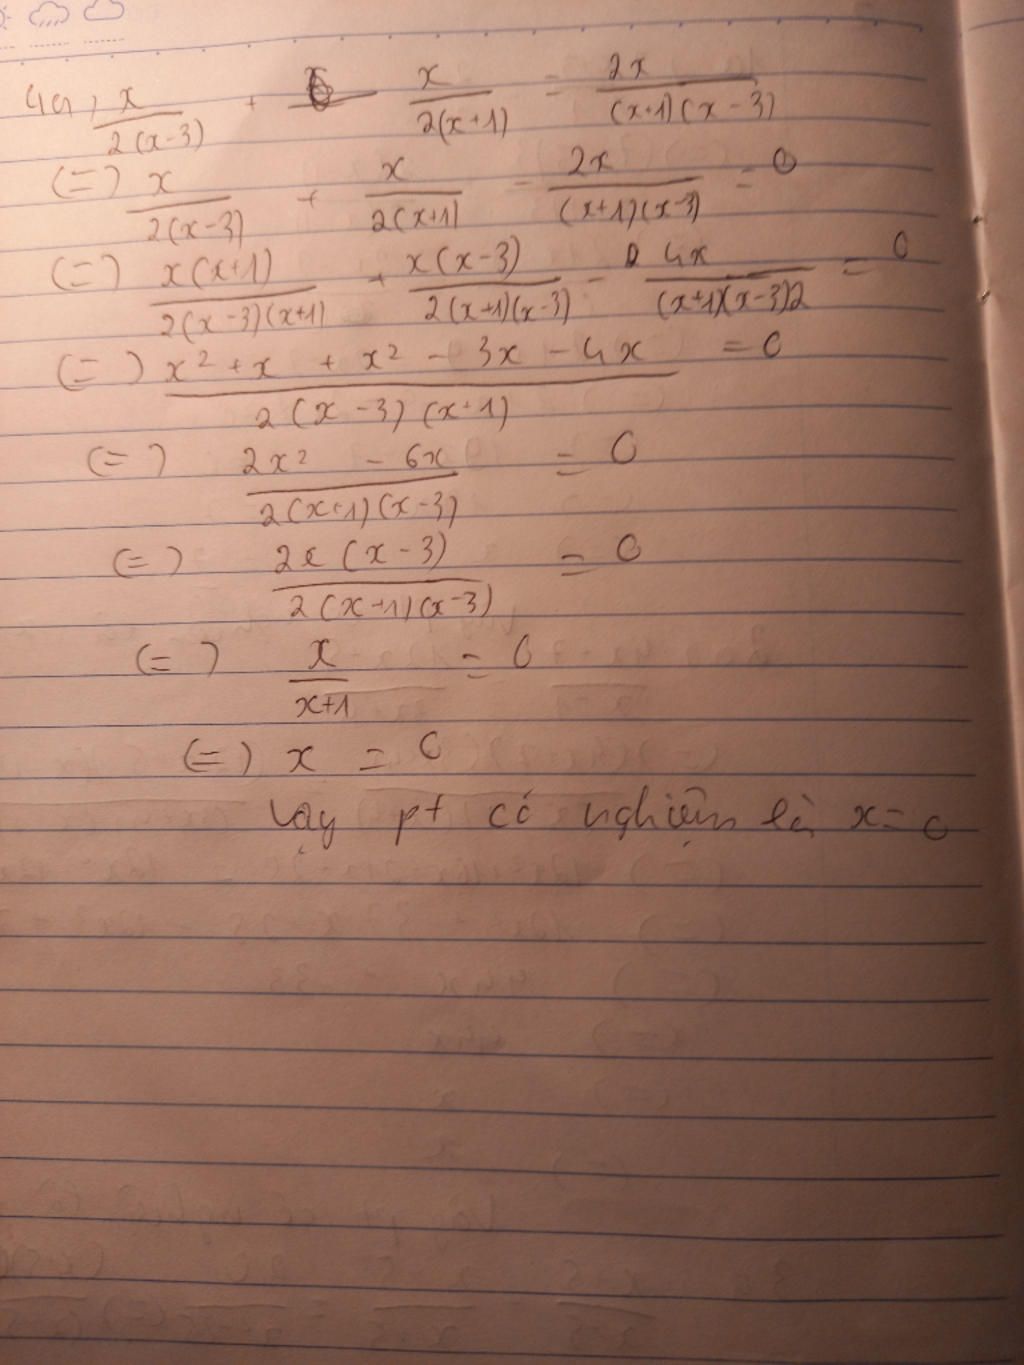 4a, x/2(x-3) + x/2(x+1) = 2x/(x+1)(x-3)
(=) x/2(x-3) + x/2(x+1) - 2x/(x+1)(x-3) = 0
(=) x(x+1)/2(x-3)(x+1) + x(x-3)/2(x+1)(x-3) - 4x/(x+1)(x-3)2 = 0
(=) x² + x + x² - 3x - 4x/2(x-3)(x+1) = 0
(=) 2x² - 6x/2(x+1)(x-3) = 0
(=) 2x(x-3)/2(x+1)(x-3) = 0
(=) x/x+1 = 0
(=) x = 0
Vậy pt có nghiệm là x = 0